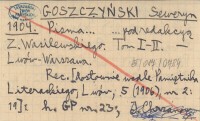 GOSZCZYŃSKI Seweryn
1904. Pisma... pod redakcją
Z. Wasilewskiego. Tom I-II. -
Lwów-Warszawa.
Rec. Dosłownie wedle Pamiętnika
Literackiego, Lwów, 5 (1906), nr 2:
hs GP nr 23;